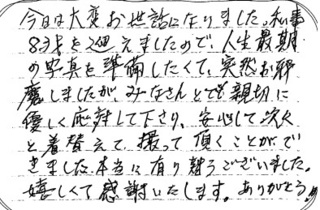 今日は大変お世話になりました。私事
83才を迎えましたので、人生最期
の写真を準備したくて、突然お邪
魔しましたが、みなさんとても親切に
優しく応対して下さり、安心して次々
と着替えて、撮って頂くことがで
きました。本当に有り難うございました。
嬉しくて感謝いたします。ありがとう!